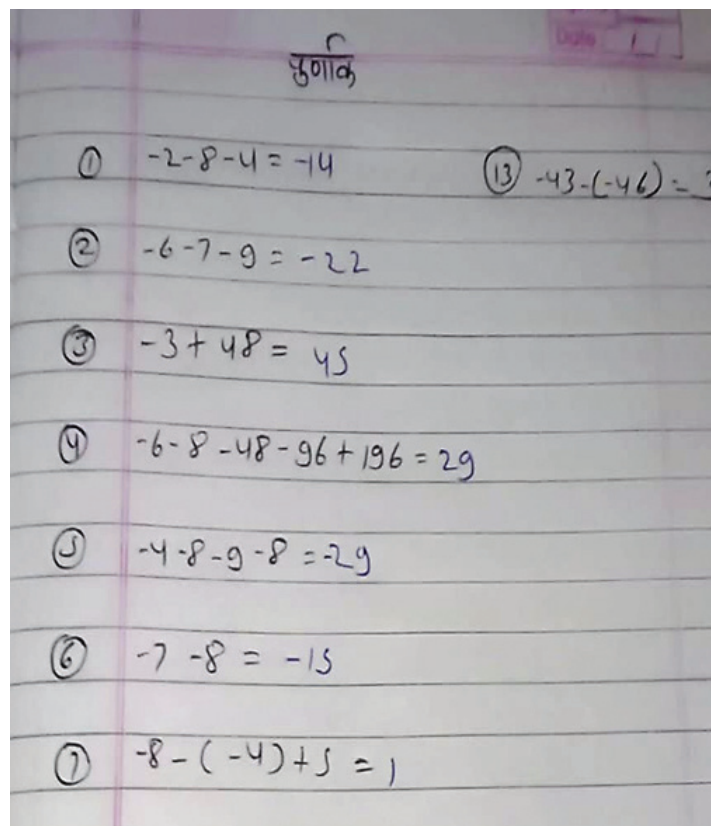 Date
पुर्णांक
① -2-8-4 = -14
⑬ -43-(-46) = 3
② -6-7-9 = -22
③ -3+48 = 45
④ -6-8-48-96+196 = 29
⑤ -4-8-9-8 = -29
⑥ -7-8 = -15
⑦ -8-(-4)+5 = 1